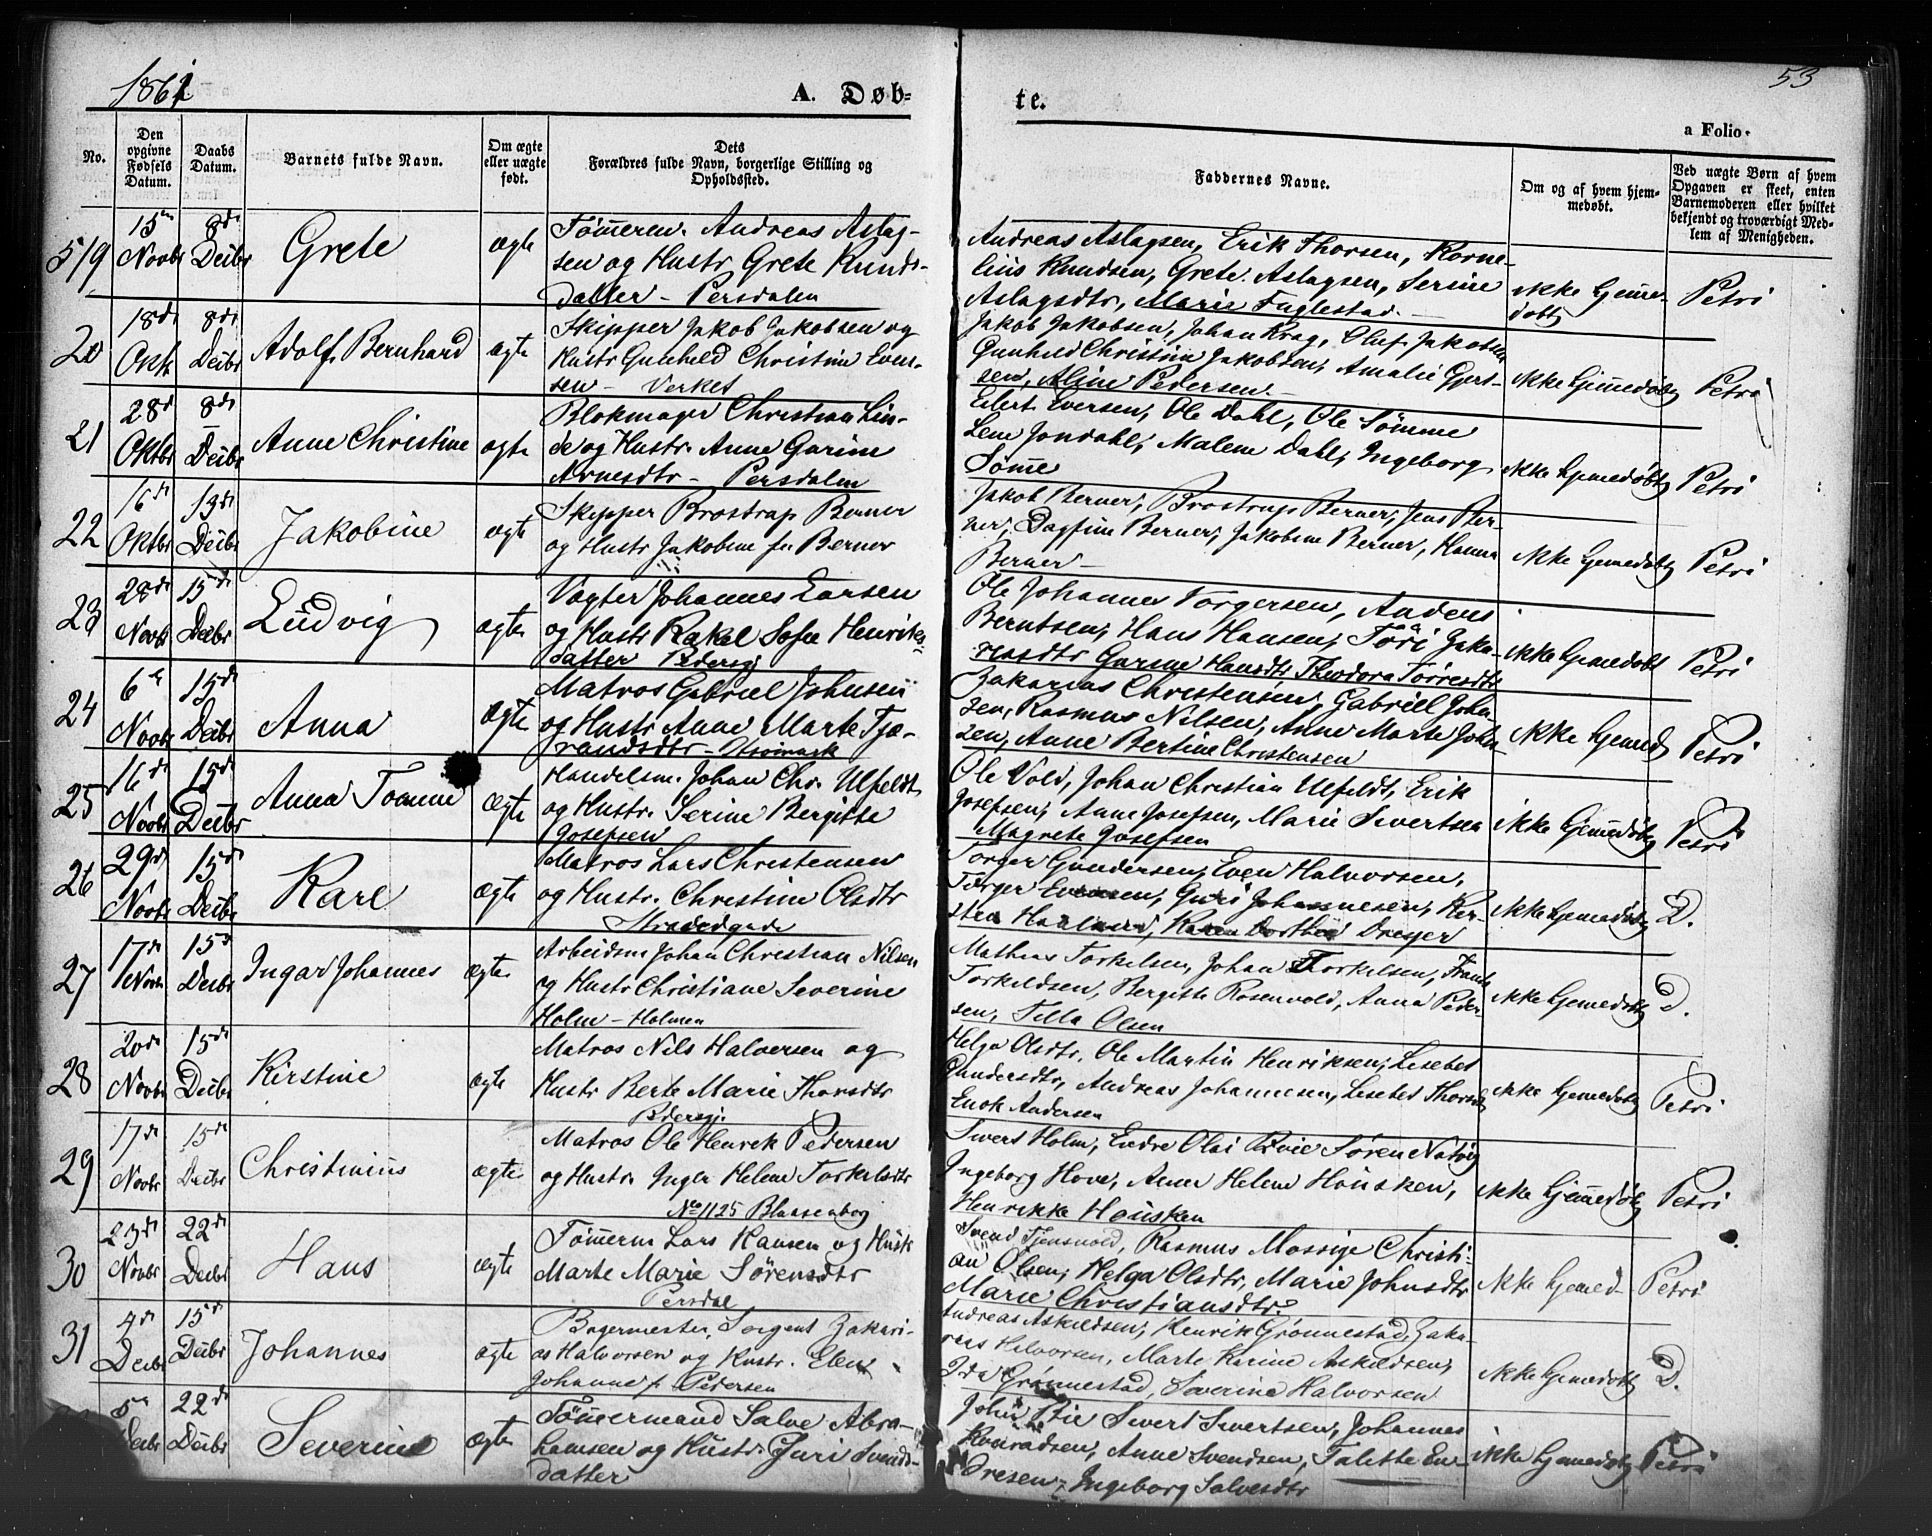 1861
A. Døb-
te.
53
a Folio.
No.
Den opgivne Fødsels Datum.
Daabs Datum.
Barnets fulde Navn.
Om ægte eller uægte født.
Dets
Forældres fulde Navn, borgerlige Stilling og Opholdssted.
Faddernes Navne.
Om og af hvem hjem-
medøbt.
Ved uægte Børn af hvem
Opgaven er skeet, enten
Barnemoderen eller hvilket
bekjendt og troværdigt Med-
lem af Menigheden.
519 15 Novbr 8de Decbr Grete ægte
Tømmerm. Andreas Aslag-
sen og Hustr Grete Knuds-
datter - Persdalen
Andreas Aslagsen, Erik Thorsen, Korne-
lius Knudsen, Grete Aslagsen, Serine
Aslagsdtr, Marie Fuglestad.
ikke hjemme-
døbt
Petri
20 18de Okt 8de Decbr Adolf Bernhard ægte
Skipper Jakob Jakobsen og
Hustr Gunhild Christine Even-
sen - Verket
Jakob Jakobsen, Johan Krag, Oluf Jakobsen
Gunhild Christine Jakobsen, Amalie Gjert-
sen, Aline Pedersen
ikke hjemmedøbt Petri
21 28d Oktbr 8de Decbr Anne Christine ægte
Blokmager Christian Lin-
de og Hustr. Anne Gurine
Arnesdtr - Persdalen
Eilert Eversen, Ole Dahl, Ole Sømme
Lene Jondahl, Malene Dahl, Ingeborg
Sømme
ikke hjemedøbt Petri
22 16de Oktbr 13de Decbr Jakobine ægte
Skipper Brostrup Berner
og Hustr Jakobine f. Berner
Jakob Berner, Brostrup Berner, Jens Ber-
ner, Dagfine Berner, Jakobine Berner, Hanna
Berner
ikke hjemedøbt Petri
23 28de Novb 15de Decbr Ludvig ægte
Vogter Johannes Larsen
og Hustr Rakel Sofie Henriks
datter Pedersg
Ole Johannes Torgersen, Anders
Berntsen, Hans Hansen, Tori Zaka-
riasdtr Gurine Hansdtr Theodora Torresdtr
ikke hjemedøbt Petri
24 6 Novbr 15de Decbr Anna ægte
Matros Gabriel Johnsen
og Hustr Anne Marte Tjæ-
randsdtr
Zakarias Christensen, Gabriel John-
sen, Rasmus Nilsen, Anne Marte John-
sen, Anne Bertine Christensen
ikke hjemed Petri
25 16de Novbr 15de Decbr Anna Tomine ægte
Handelsm. Johan Chr. Ulfeldt
og Hustr. Serine Bergitte
Josefsen
Ole Vold, Johan Christian Ulfeldt, Erik
Josefsen, Anne Josefsen, Marie Sivertsen
Magrete Josefsen
ikke hjemmedøbt Petri
26 29d Novbr 15d Decbr Karl ægte
Matros Lars Christensen
og Hustr. Christine Olsdtr
Stradedgade
Torger Gundersen, Even Halvorsen,
Torger Evensen, Guri Johannesen, Kir-
Karen Dorthea Dreyer
ikke hjemedøbt D.
27 17de Novbr 15d Decbr Ingar Johannes ægte
Arbeidsm Johan Christian Nilsen
og Hustr Christiane Severine
Holm - Holmen
Mathias Torkelsen, Johan Torkelsen, Frants
Torkildsen, Bergitte Rosenvold, Anna Peder-
sen, Tilla Olsen
ikke hjemedøbt D.
28 20de Novbr 15de Decbr Kirstine ægte
Matros Nils Halversen og
Hustr Berte Marie Thorsdtr
Pdersg.
Helga Olsdtr, Ole Martin Henriksen, Lisebet
Gundersdtr, Andreas Johannesen, Lisebet Thorsd
Enok Andersen
ikke hjemedøbt Petri
29 17de Novbr 15de Decbr Christinius ægte
Matros Ole Henrik Pedersen
og Hustr. Inger Helene Torkelsdtr
No 1125 Blaasenborg
Sivert Holm, Endre Olai Søren Natvig
Ingeborg Hove, Anne Helene Housken,
Henrikke Housken
ikke hjemmedøbt Petri
30 23de Novbr 22de Decbr Hans ægte
Tømmerm Lars Hansen og Hustr
Marte Marie Sørensdtr
Persdal
Svend Tjensvold, Rasmus Mossige Christi-
an Olsen, Helga Olsdtr, Marie Johnsdtr
Marie Christiansdtr
ikke hjemed- Petri
31 4de Decbr 15de Decbr Johannes ægte
Bagermester, Sorgent Zakari-
as Halvorsen og Hustr. Elen
Johanne f. Pedersen
Andreas Askildsen, Henrik Grønnestad, Zaka-
rias Halvorsen, Marte Karine Askildsen,
Ida Grønnestad, Severine Halvorsen
ikke hjemedøbt D.
5 Decbr 22de Decbr Severine ægte
Tømmermand Salve Abra-
hamsen og Hustr. Juri Svends-
datter
John Sivert Sivertsen, Johannes
Konradsen, Anne Svendsen, Talette En-
dresen, Ingeborg Salvesdtr
ikke hjemedøbt Petri